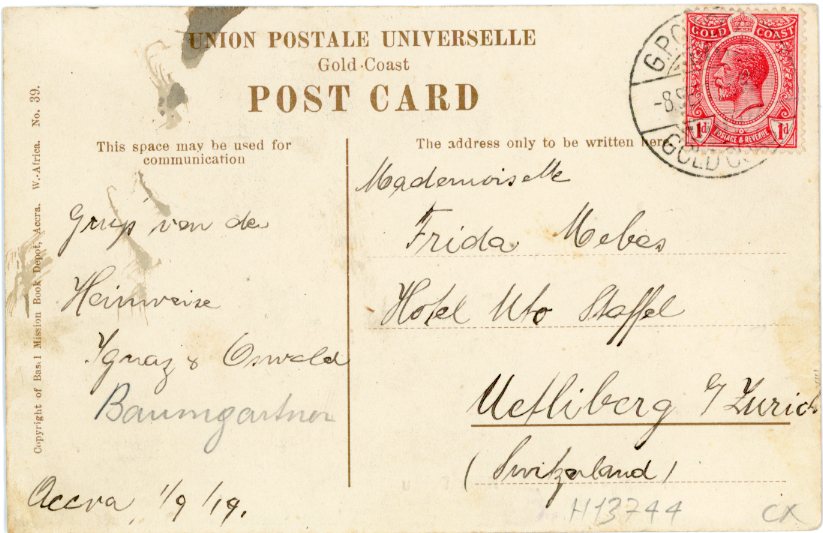 UNION POSTALE UNIVERSELLE
Gold-Coast
POST CARD
This space may be used for
communication
The address only to be written here
GOLD COAST
1d 1d
POSTAGE & REVENUE
G.P.O.
-8 S
GOLD CO
Copyright of Basel Mission Book Depot, Accra. W.-Africa. No. 39.
Gruß von der
Heimreise
Ignaz & Oswald
Baumgartner
Accra 1/9/19.
Mademoiselle
Frida Mebes
Hotel Uto Staffel
Uetliberg /Zurich
(Switzerland)
H13744
CX